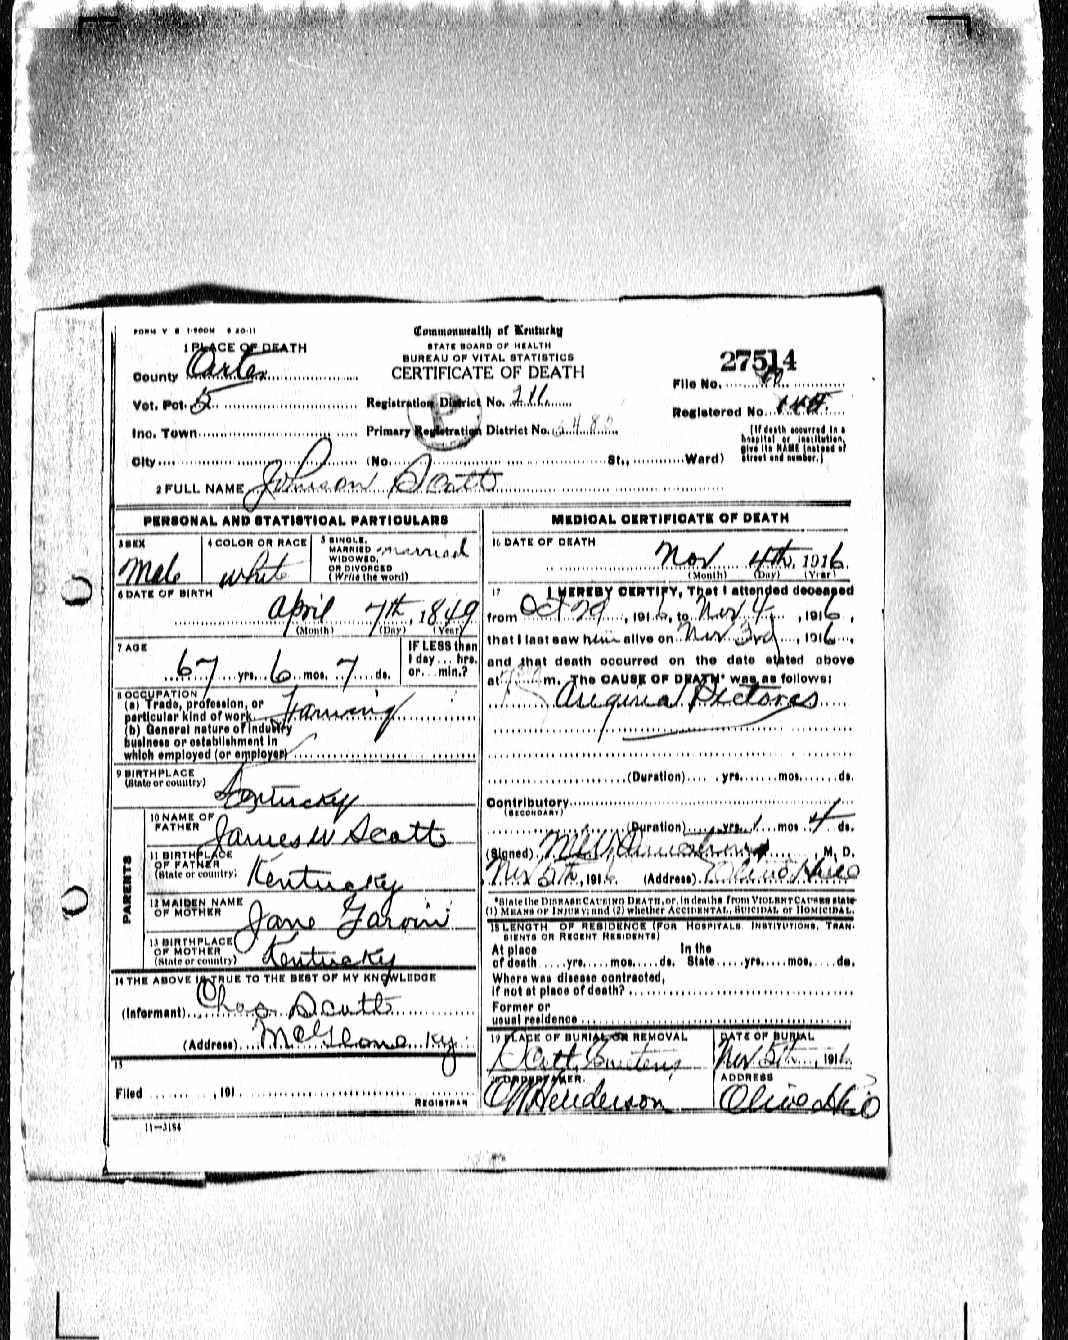 FORM V S 1-500M 6 20-11
Commonwealth of Kentucky
STATE BOARD OF HEALTH
BUREAU OF VITAL STATISTICS
CERTIFICATE OF DEATH
1 PLACE OF DEATH
County Carter
Vot. Pct. 5
Inc. Town
City (No. St., Ward)
Registration District No. 211
Primary Registration District No.
27514
File No.
Registered No.
[If death occurred in a
hospital or institution,
give its NAME instead of
street and number.]
2 FULL NAME Johnson Scott
PERSONAL AND STATISTICAL PARTICULARS
3 SEX
Male
4 COLOR OR RACE
White
5 SINGLE,
MARRIED married
WIDOWED,
OR DIVORCED
(Write the word)
6 DATE OF BIRTH
April 7th, 1849
(Month) (Day) (Year)
7 AGE
67 yrs. 6 mos. 7 ds.
IF LESS than
1 day ... hrs.
or ... min.?
8 OCCUPATION
(a) Trade, profession, or
particular kind of work Farming
(b) General nature of industry
business or establishment in
which employed (or employer)
9 BIRTHPLACE
(State or country)
Kentucky
PARENTS
10 NAME OF
FATHER
James W Scott
11 BIRTHPLACE
OF FATHER
(State or country)
Kentucky
12 MAIDEN NAME
OF MOTHER
Jane Garvin
13 BIRTHPLACE
OF MOTHER
(State or country)
Kentucky
14 THE ABOVE IS TRUE TO THE BEST OF MY KNOWLEDGE
(Informant) Chas Scott
(Address) McGlone Ky
15
Filed , 191
REGISTRAR
11-3184
MEDICAL CERTIFICATE OF DEATH
16 DATE OF DEATH
Nov 4th, 1916
(Month) (Day) (Year)
17 I HEREBY CERTIFY, That I attended deceased
from Oct 29, 1916, to Nov 4, 1916,
that I last saw him alive on Nov 3rd, 1916,
and that death occurred on the date stated above
at m. The CAUSE OF DEATH* was as follows:
Angina Pictores
(Duration) yrs. mos. ds.
Contributory
(SECONDARY)
(Duration) yrs. 1 mos 4 ds.
(Signed) Armstrong, M. D.
Nov 5th, 1916 (Address) Olive Hill
*State the DISEASE CAUSING DEATH, or, in deaths from VIOLENT CAUSES state
(1) MEANS OF INJURY; and (2) whether ACCIDENTAL, SUICIDAL or HOMICIDAL.
18 LENGTH OF RESIDENCE (FOR HOSPITALS, INSTITUTIONS, TRAN-
SIENTS OR RECENT RESIDENTS)
At place In the
of death yrs. mos. ds. State yrs. mos. ds.
Where was disease contracted,
if not at place of death?
Former or
usual residence
19 PLACE OF BURIAL OR REMOVAL
Scott Cemetery
DATE OF BURIAL
Nov 5th, 1916
20 UNDERTAKER
Henderson
ADDRESS
Olive Hill